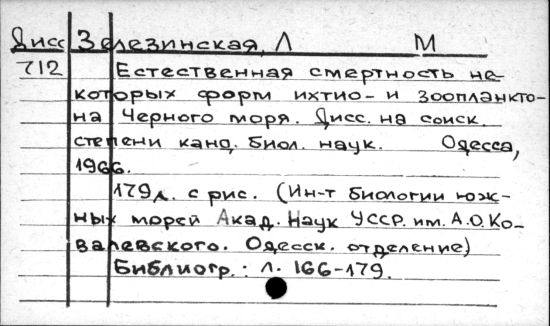 Дисс Зелезинская, Л М
712 Естественная смертность не-
которых форм ихтио- и зоопланкто-
на Черного моря. Дисс. на соиск.
степени канд. биол. наук. Одесса,
1966.
179 л. с рис. (Ин-т биологии юж-
ных морей Акад. Наук УССР. им. А.О. Ко-
валевского. Одесск. отделение)
Библиогр.: л. 166-179.